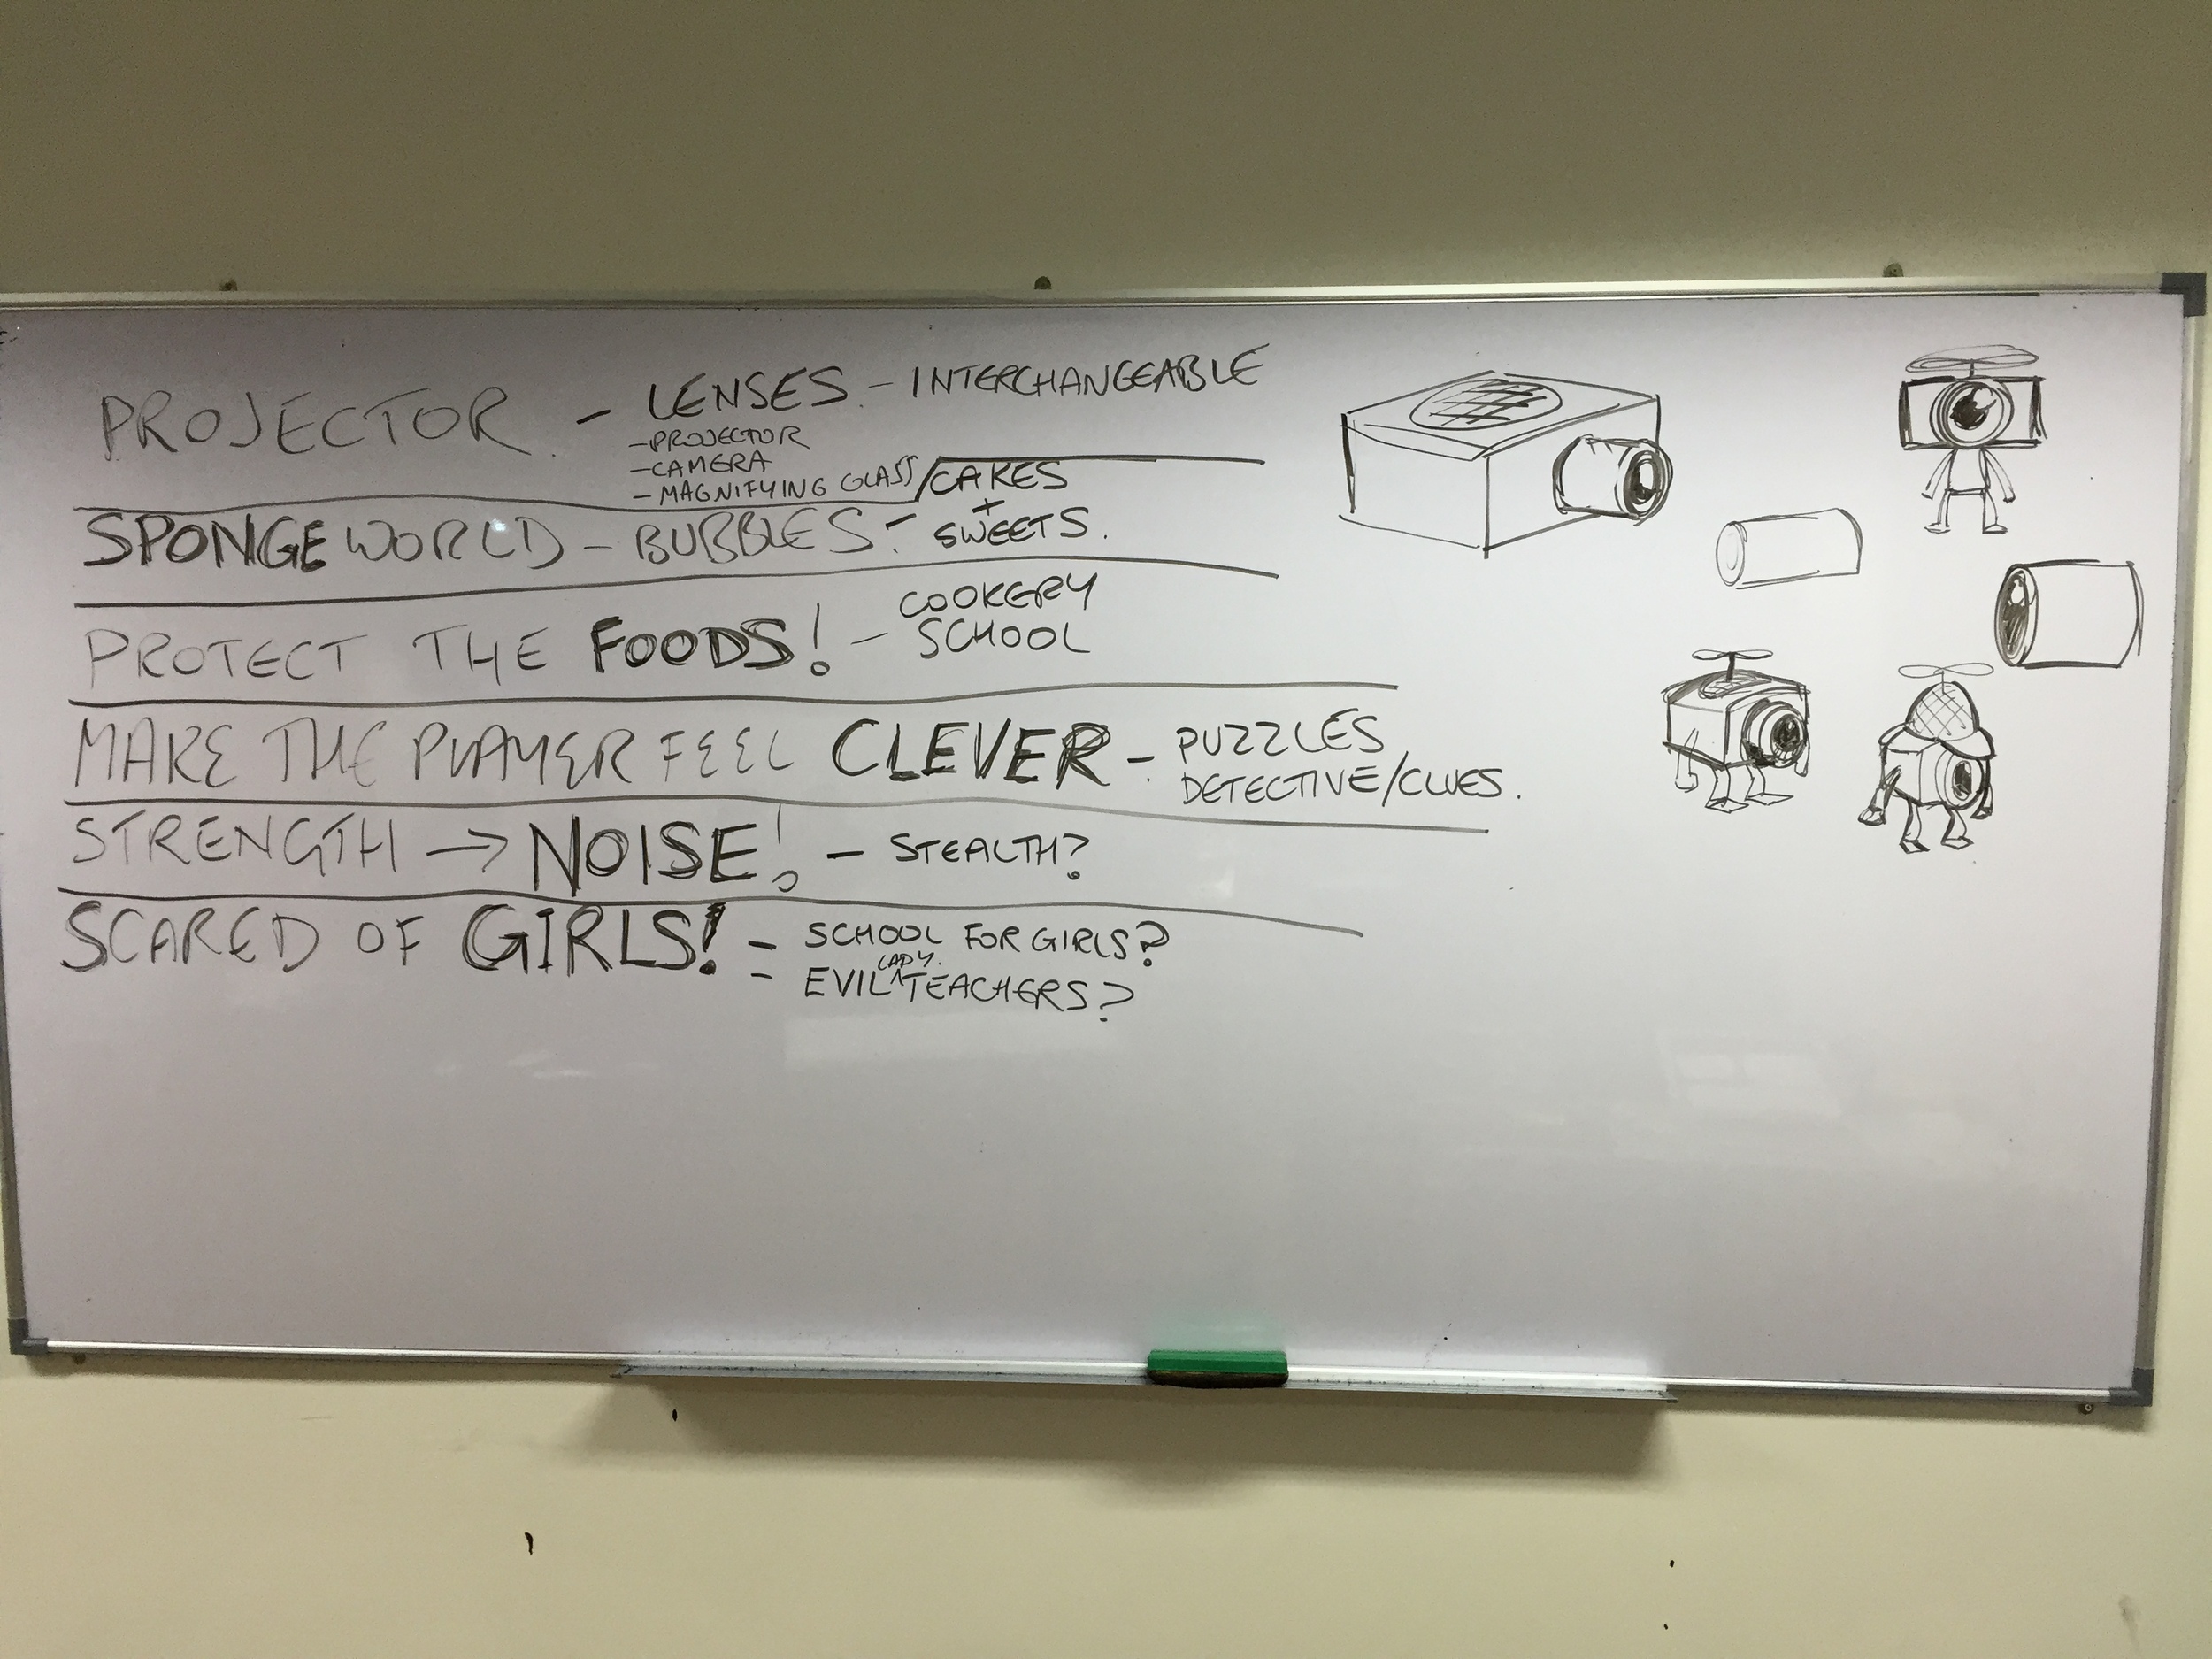 PROJECTOR - LENSES - INTERCHANGEABLE
- PROJECTOR
- CAMERA
- MAGNIFYING GLASS
SPONGE WORLD - BUBBLES - CAKES
+
SWEETS.
PROTECT THE FOODS! - COOKERY
SCHOOL
MAKE THE PLAYER FEEL CLEVER - PUZZLES
DETECTIVE/CLUES.
STRENGTH → NOISE! - STEALTH?
SCARED OF GIRLS! - SCHOOL FOR GIRLS?
- EVIL LADY TEACHERS?